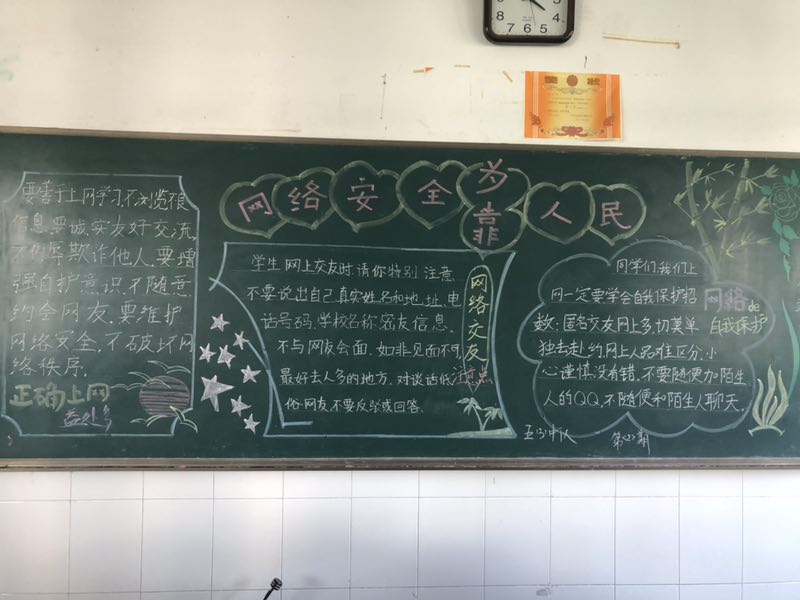 网络安全为靠人民
要善于上网学习,不浏览不良
信息.要诚实友好交流,
不侮辱欺诈他人.要增
强自护意识.不随意
约会网友.要维护
网络安全,不破坏网
络秩序.
正确上网
益处多
学生网上交友时,请你特别注意
不要说出自己真实姓名和地址、电
话号码、学校名称、密友信息.
不与网友会面.如非见面不可,
最好去人多的地方.对谈话低
俗网友,不要反驳或回答.
网络交友
注意点
同学们,我们上
网一定要学会自我保护招
数:匿名交友网上多,切莫单
独去赴约.网上人品难区分,小
心谨慎没有错.不要随便加陌生
人的QQ,不随便和陌生人聊天.
网络de
自我保护